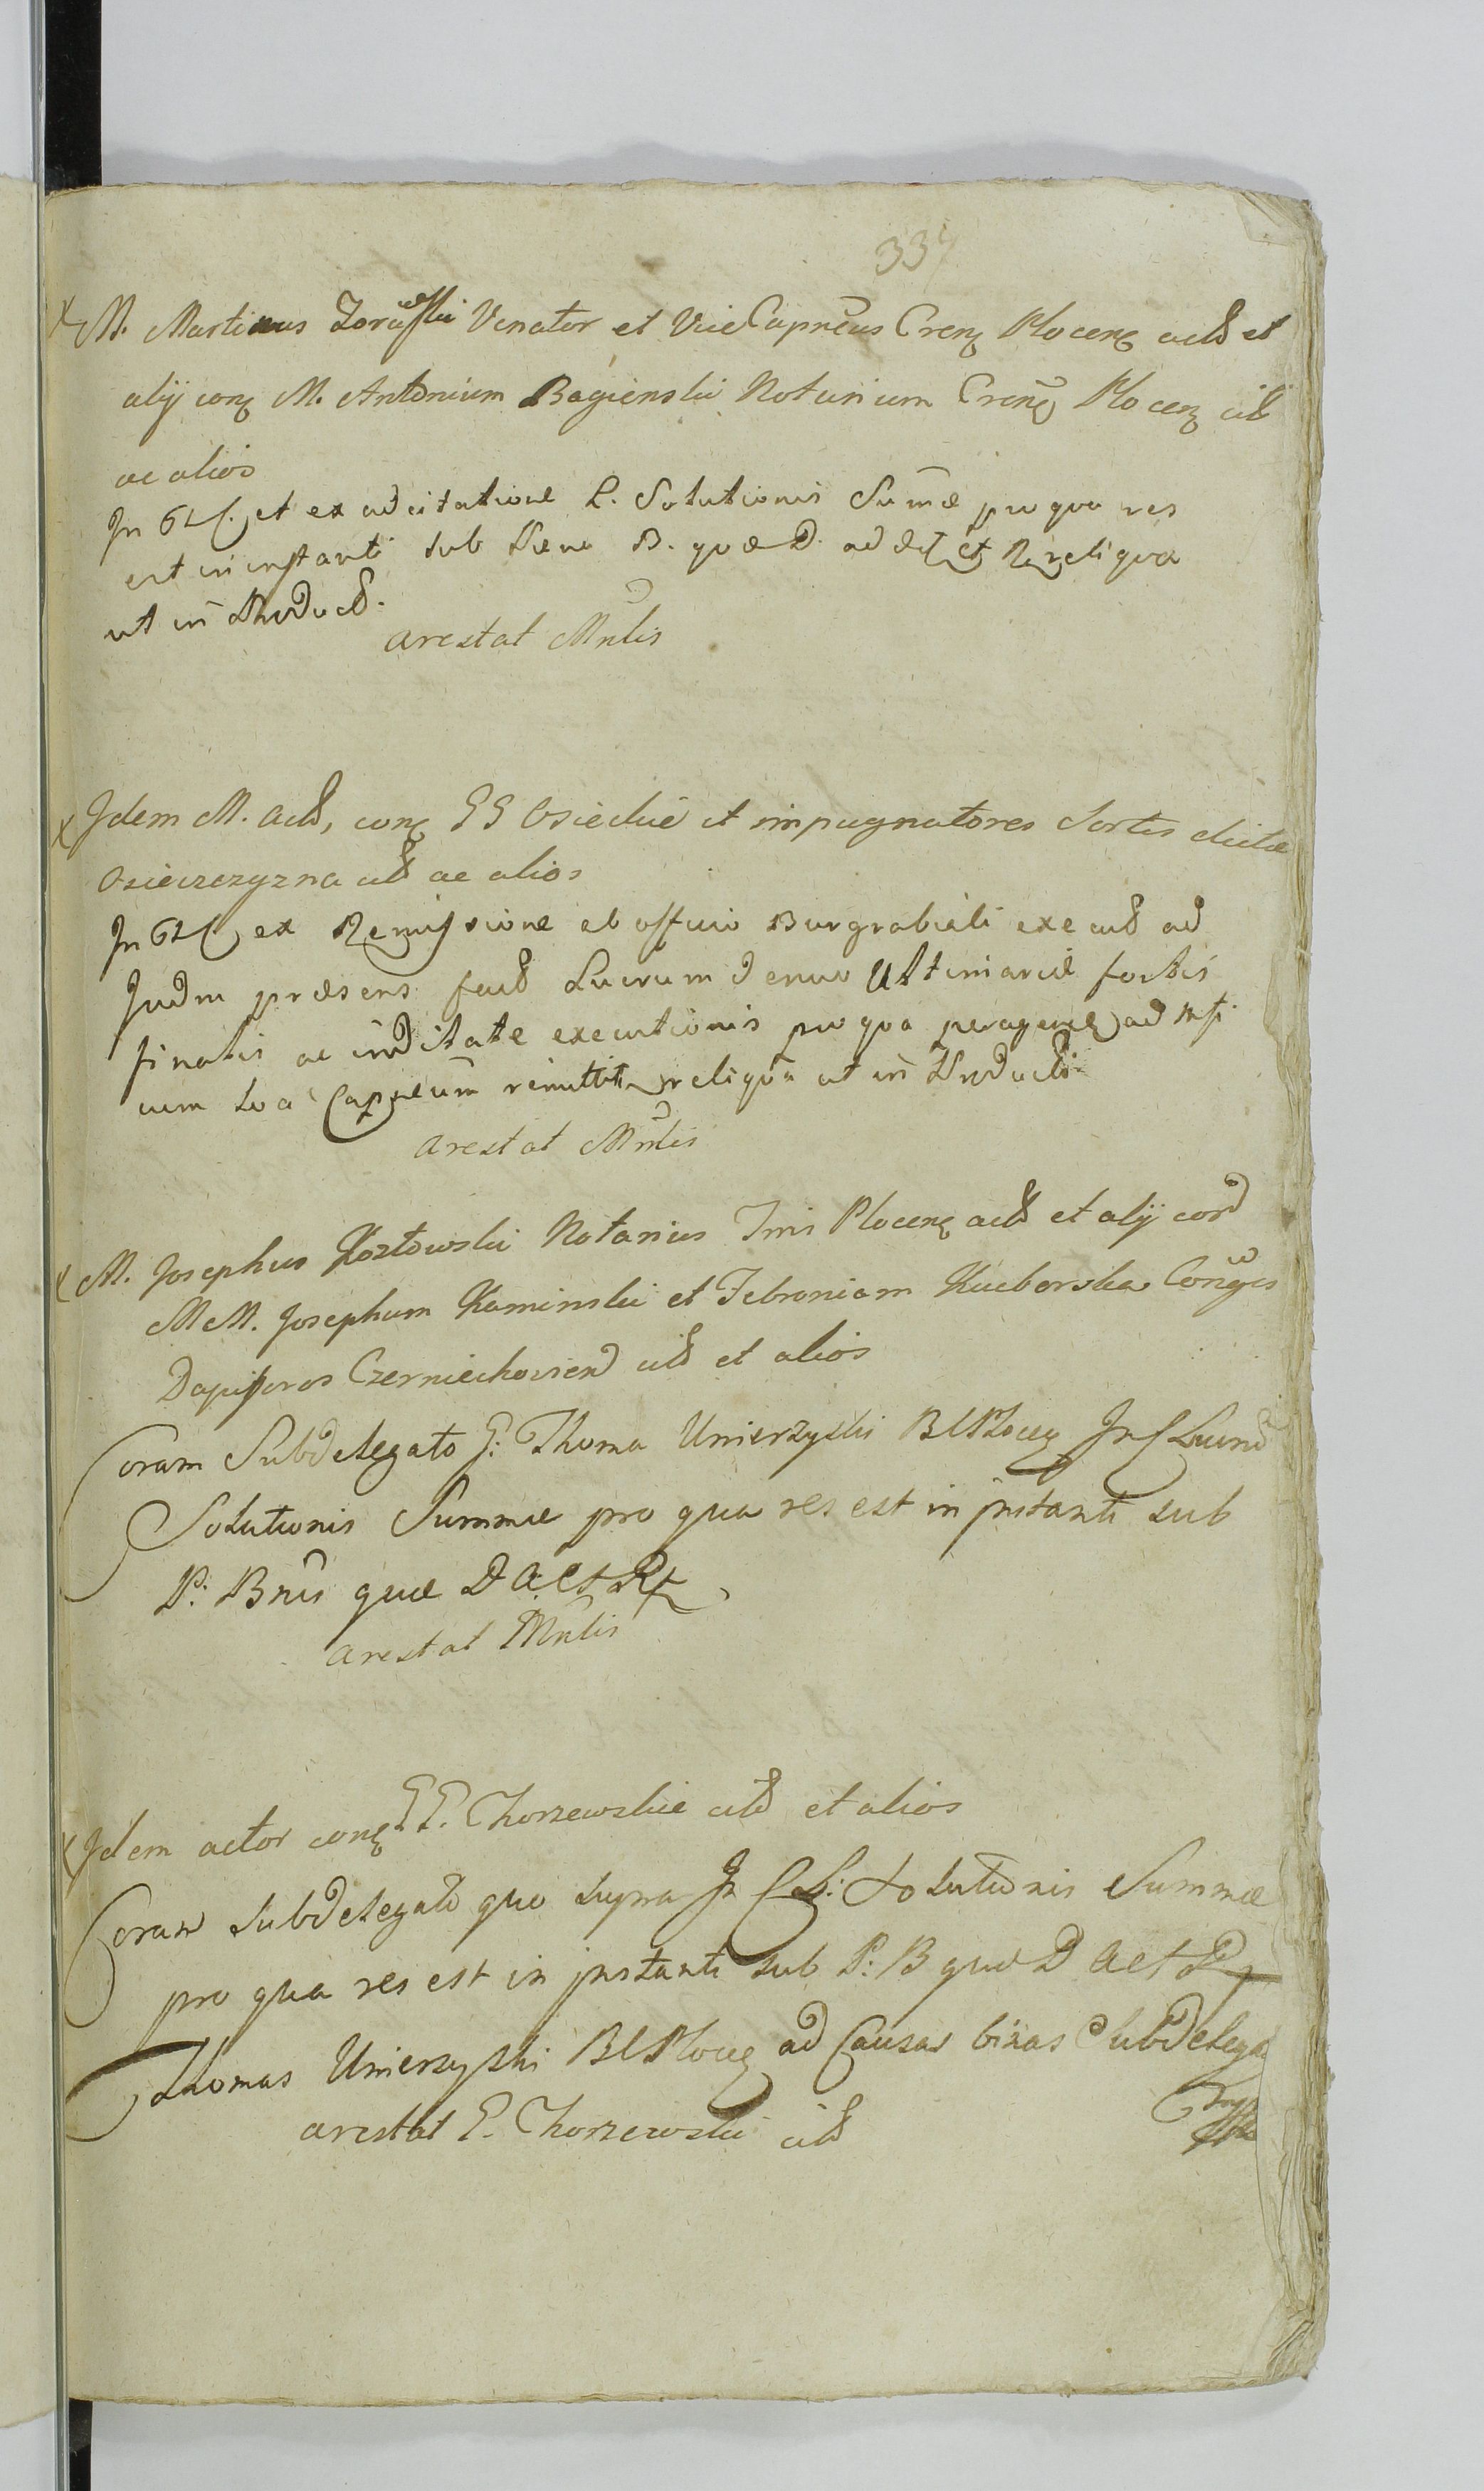 334
M. Martinus Zorawski Venator et ViceCapneus Cren Plocen act et
alij con M. Antonium Bagienski Notarium Cren Plocen cit
ac alios
et ex adcitatione L. Solutionis Sumae pro qua res
est in instanti sub Paena B. quae D. ad et reliqua
ut in Producto.
arestat Mnlis
Idem M. act, con GG Osieckie et impugnatores Sortis dictae
Osiecczyzna cit ac alios
ex Remissione ab officio Burgrabiali ad
Judm praesens Lucrum denuo Ultimariae sortis
finalis ac executionis pro qua ad
cum loci Capneum remittit reliqua ut in Producto
arestat Mnlis
M. Josephus Kozłowski Notarius Trris Plocen act et alij con
MM. Josephum Kaminski et Febroniam Kucborska Conges
Dapiferos Czerniechovien cit et alios
Coram Subdelegato G: Thoma Umierzyski BCPlocen In
Solutionis Summae pro qua res est in instanti sub
P: Bnis quae D A et R
arestat Mnlis
Idem actor con GG. Chorzewskie cit et alios
Coram Subdelegato quo supra In L: Solutionis Summae
pro qua res est in instanti sub P: B quae D A et R
Thomas Umierzyski BCPlocen ad Causas binas Subdelega
arestat G. Chorzewski cit